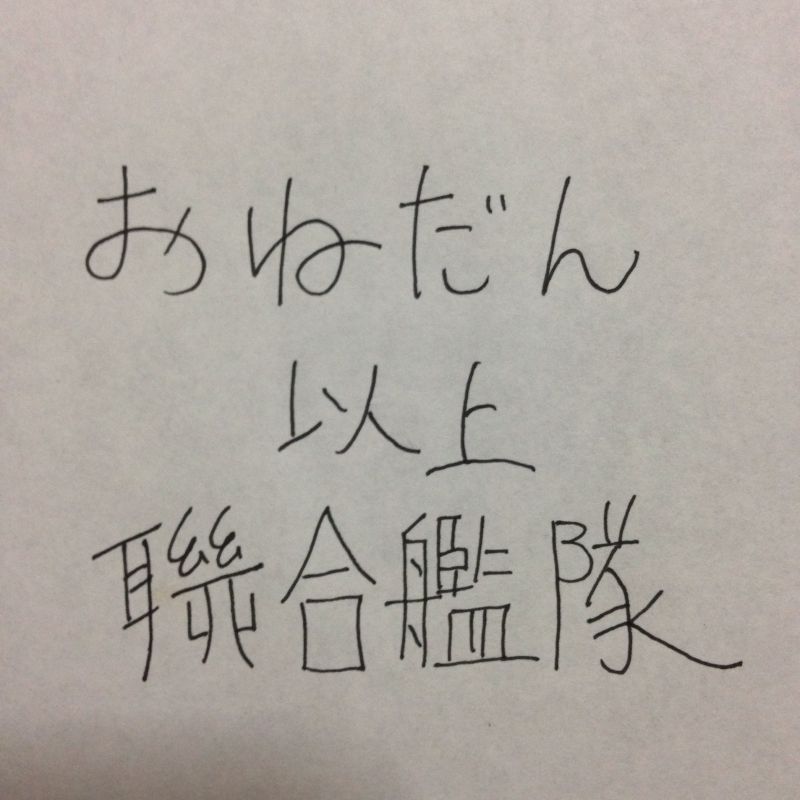 おねだん
以上
聯合艦隊